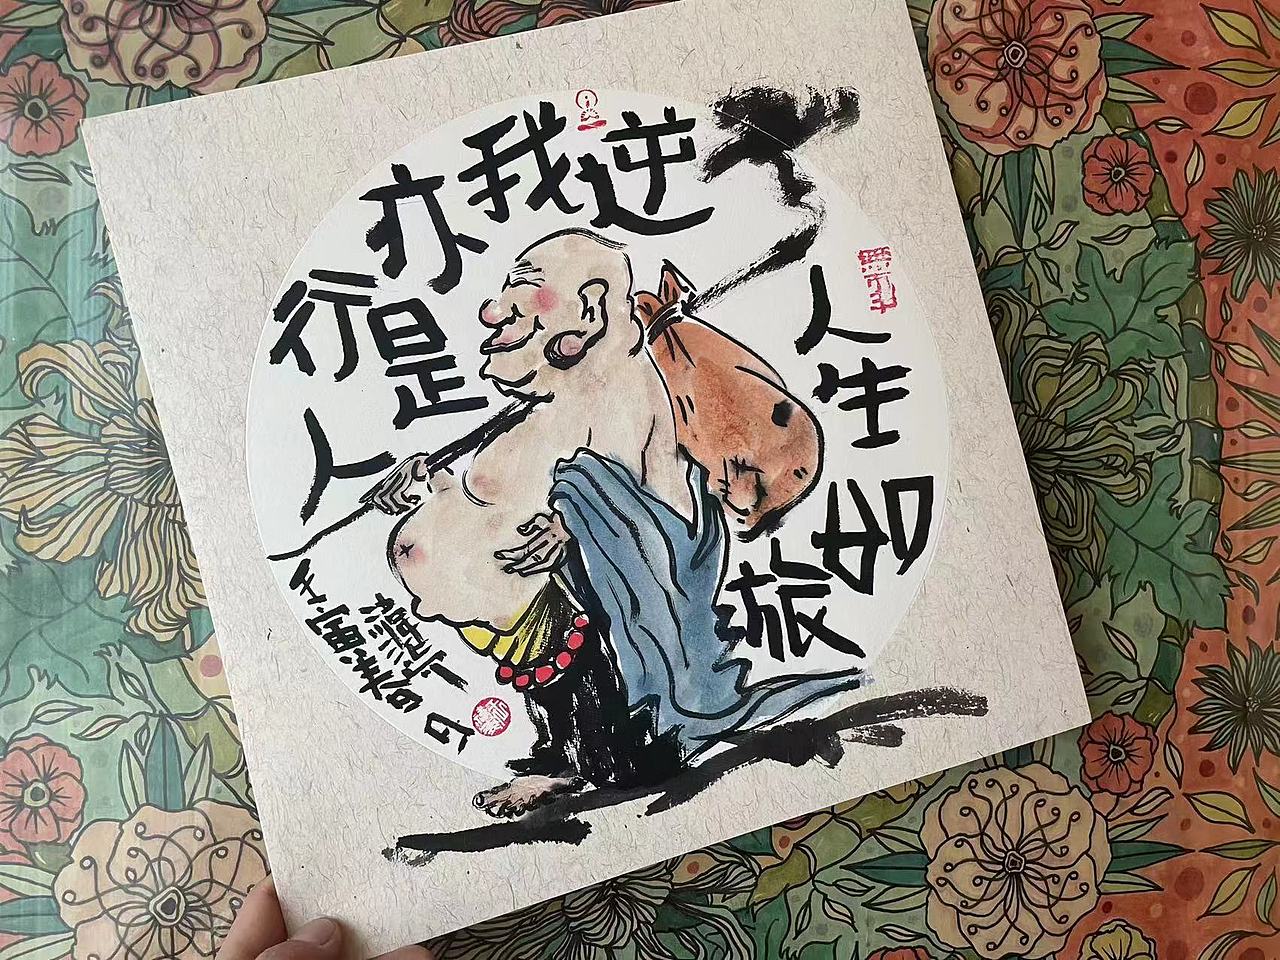 人生如
逆旅
我
亦是
行人
壬寅春